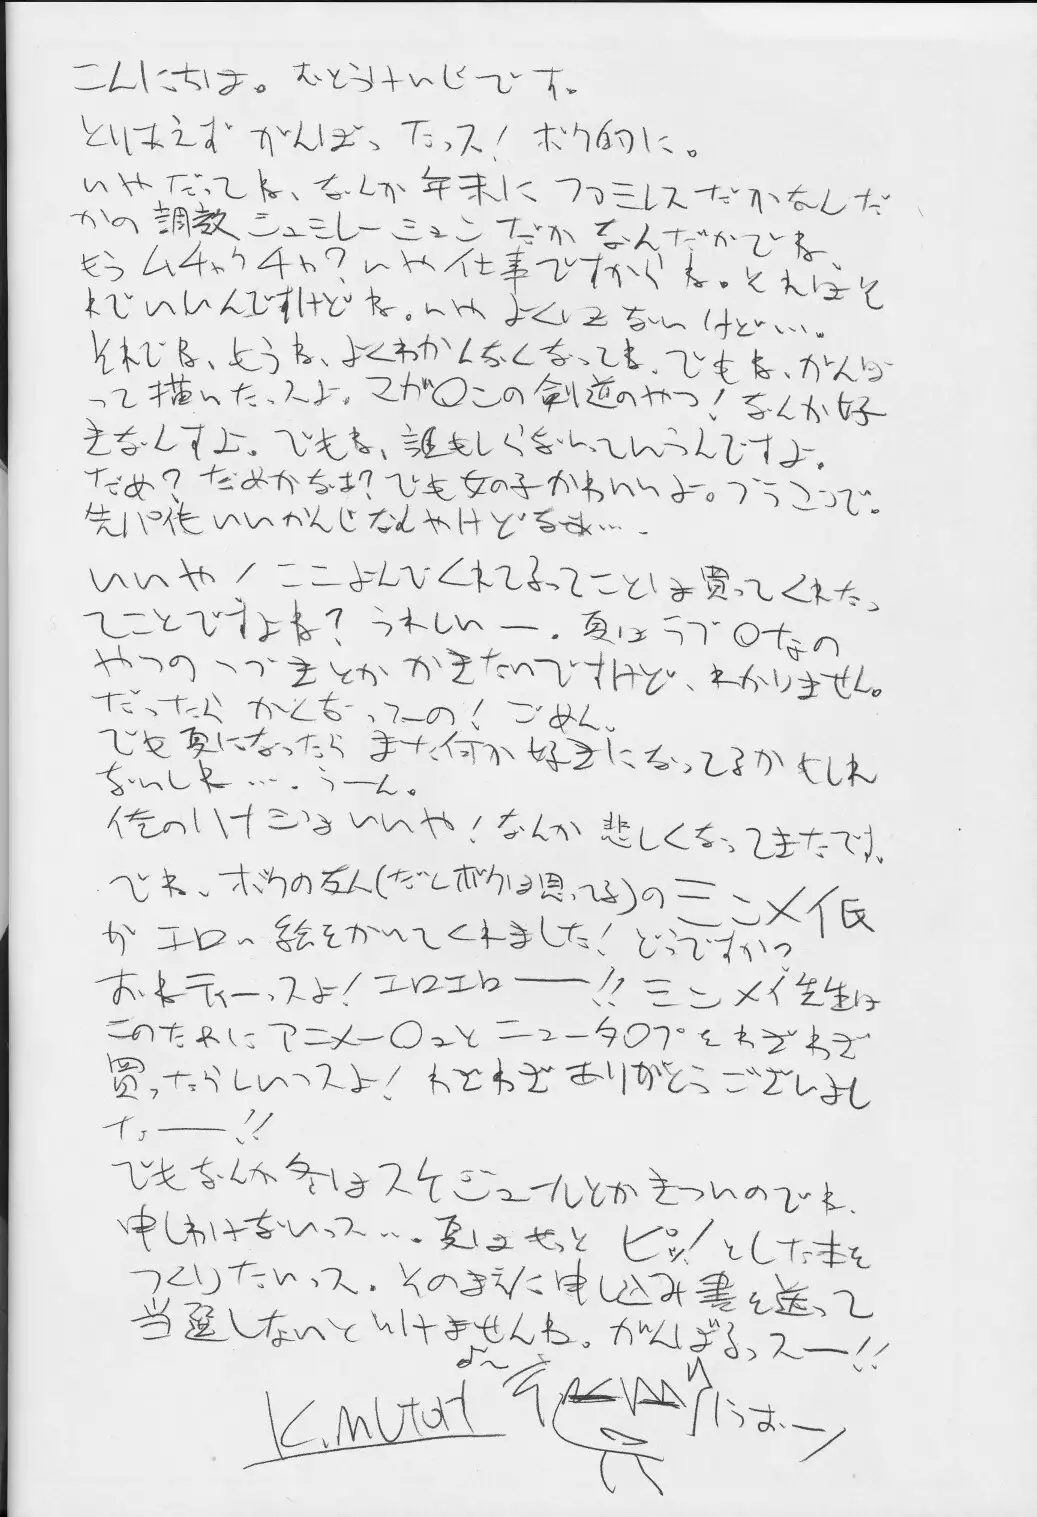 こんにちは。むとうけいじです。
とりはえず がんばったっス! ボク的に。
いやだってね、なんか年末に ファミレスだかなんだ
かの調教シュミレーションだかなんだかでね、
もうムチャクチャ?いや仕事ですからね。それはそ
れでいいんですけどね。いやよくはないけど…。
それでね、もうね、よくわかんなくなってね、でもね、がんば
って描いたっスよ。マガ〇この剣道のやつ!なんか好
きなんすよ。でもね、誰もしらないっていうんですよ。
だめ?だめかなは?でも女の子かわいいよ。ブラコンで。
先パイもいいかんじなんやけどなぁ…。
いいや!ここよんでくれてるってことは買ってくれたっ
てことですよね?うれしいー。夏はラブ〇なの
やつのつづきとかかきたいですけど、わかりません。
だったらかくなってーの!ごめん。
でも夏になったらまた何か好きになってるかもしれ
ないしね…。うーん。
俺のハナシはいいや!なんか悲しくなってきたです。
でね、ボクの友人(だとボクは思ってる)のミンメイ氏
がエロい絵をかいてくれました!どうですかっ
おねティーっスよ!エロエロー!!ミンメイ先生は
このためにアニメー〇ュとニュータ〇プをわざわざ
買ったらしいっスよ!わざわざありがとうございまし
たー!!
でもなんか冬はスケジュールとかきついのでね、
申しわけないっス…。夏はもっとピッ!とした本を
つくりたいっス。そのまえに申し込み書を送って
当選しないといけませんね。がんばるっスー!!
K.MUTOH
うおー